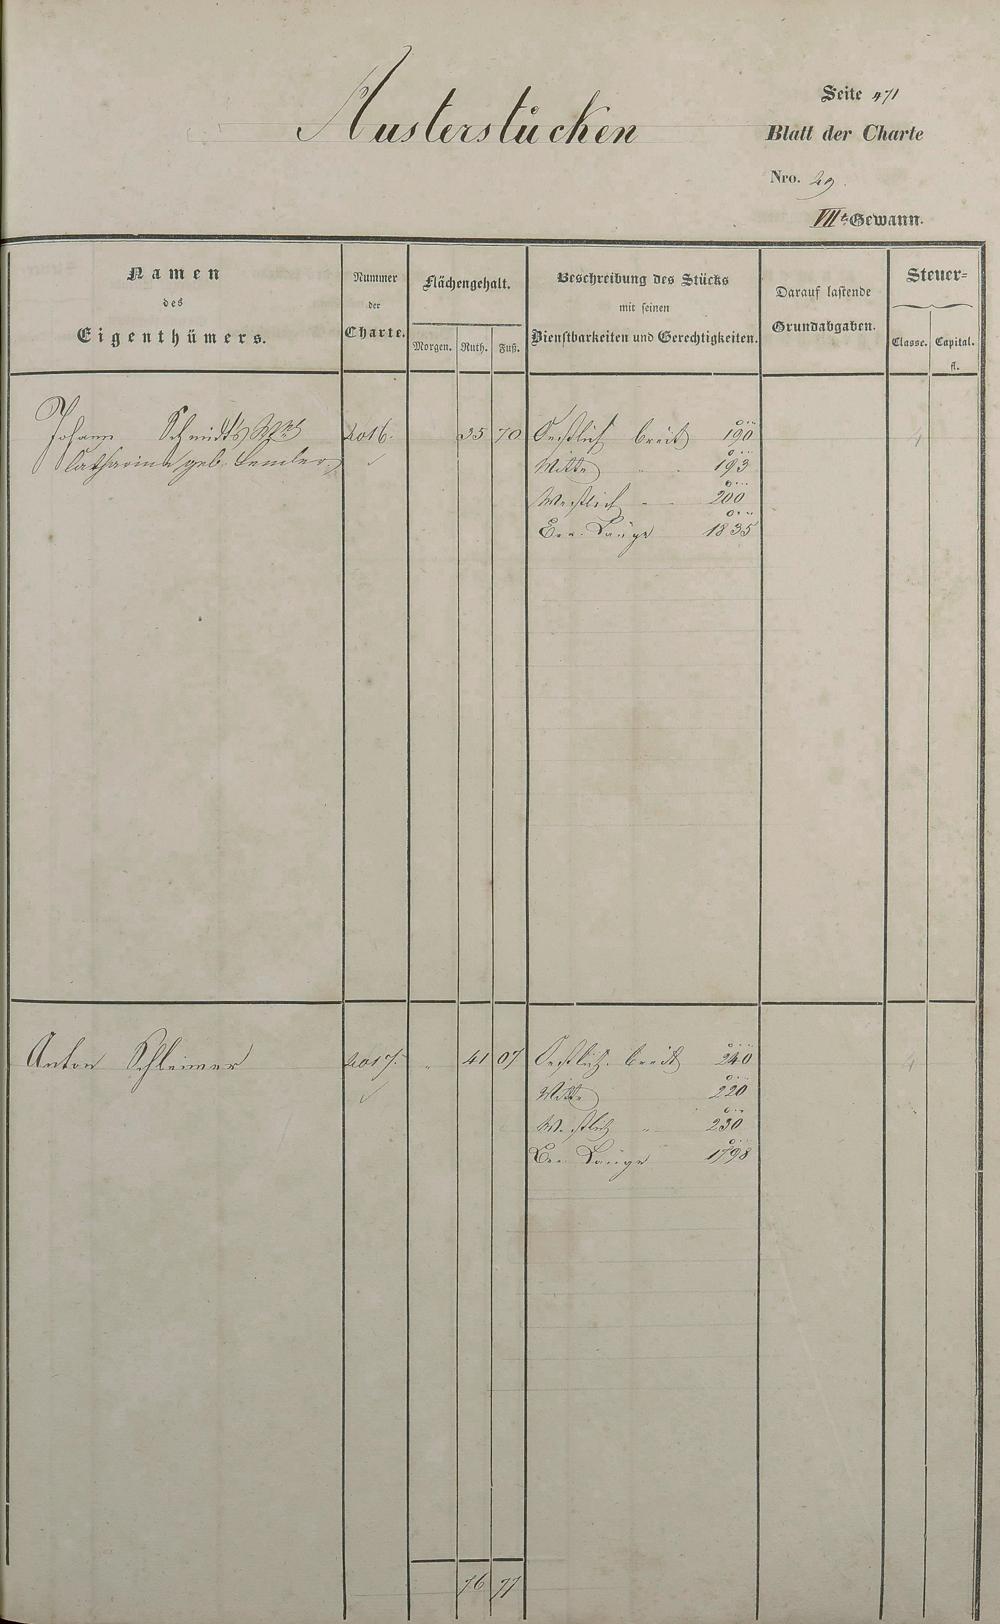 Austerstücken
Seite 471
Blatt der Charte
Nro. 29.
VIIte Gewann.
Namen des Eigenthümers.
Nummer der Charte.
Flächengehalt.
Morgen. Ruth. Fuß.
Beschreibung des Stücks mit seinen Dienstbarkeiten und Gerechtigkeiten.
Darauf lastende Grundabgaben.
Steuer-
Classe. Capital.
fl.
Johann Schmidts Wwe 2016. 35 70 Oestlich breit 190 4
Catharina geb. Mitte " " 193
Westlich " 200
Länge 1835
Anton Schleimer 2017. " 41 07 Oestlich breit 240 4
Mitte 220
Westlich " 230
Länge 1798
76 77